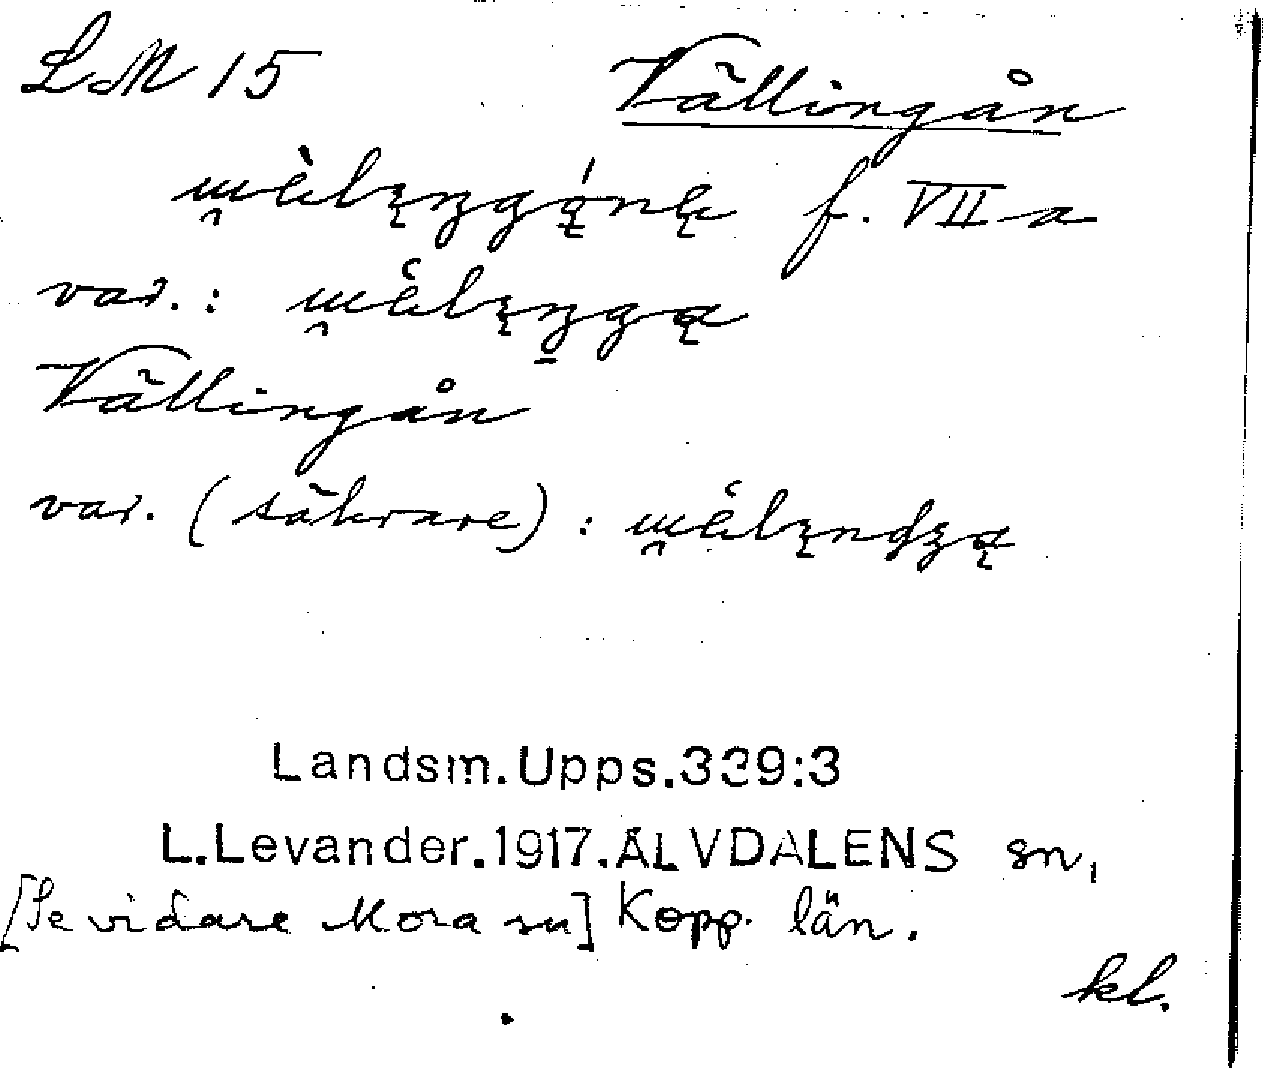 LM 15 Vällingån
f. VII a
var.:
Vällingån
var. (säkrare):
Landsm.Upps.339:3
L.Levander.1917.ÄLVDALENS sn,
[Se vidare Mora sn] Kopp. län.
kl.